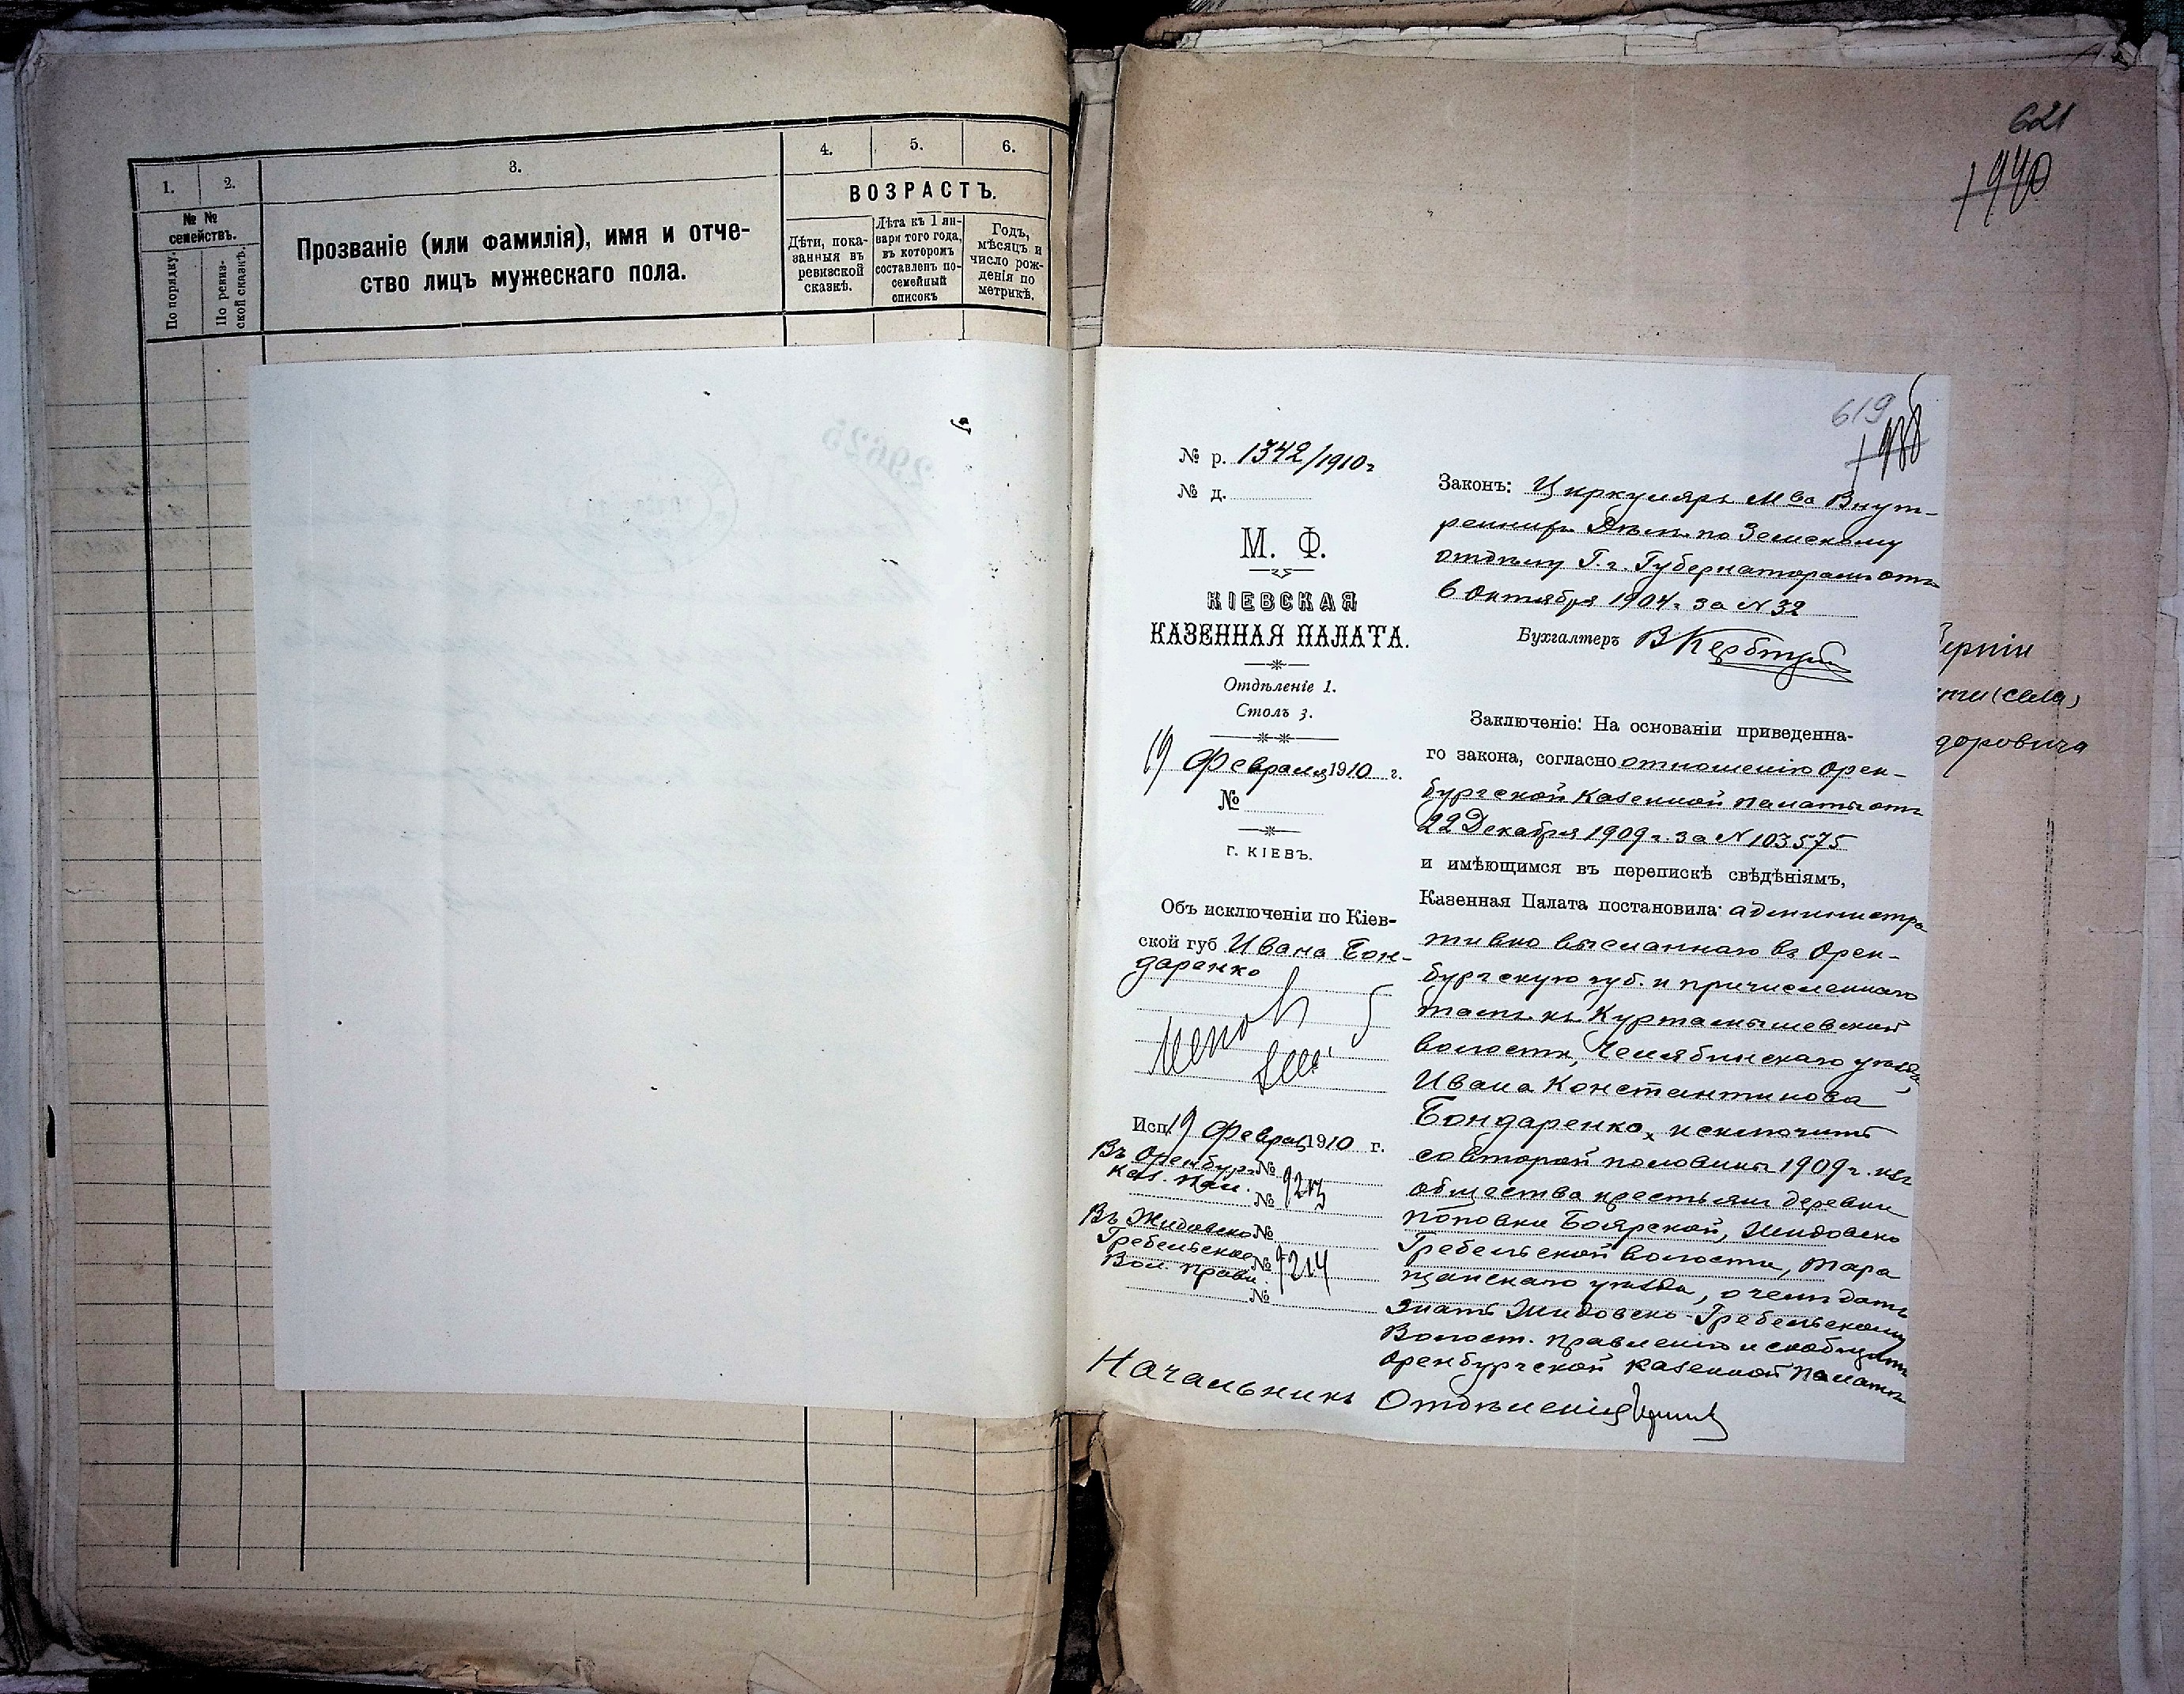 1.
2.
3.
4.
5.
6.
№ № семействъ.
По порядку.
По ревиз-
ской сказкѣ.
Прозваніе (или фамилія), имя и отче-
ство лицъ мужескаго пола.
ВОЗРАСТЪ.
Дѣти, пока-
занныя въ
ревизской
сказкѣ.
Лѣта къ 1 ян-
варя того года,
въ которомъ
составленъ по-
семейный
списокъ
Годъ,
мѣсяцъ и
число рож-
денія по
метрикѣ.
621
1940
619
1938
№ р. 1342/1910 г
№ д.
М. Ф.
КІЕВСКАЯ
КАЗЕННАЯ ПАЛАТА.
Отдѣленіе 1.
Столъ 3.
19 Февраля 1910 г.
№
Г. КІЕВЪ.
Объ исключеніи по Кіев-
ской губ Ивана Бон-
даренко
Исп. 19 Февра 1910 г.
Въ Оренбург №
Каз. Пал. № 9213
Въ Жидовско №
Гребельское № 9214
Вол. Правл.
№
Законъ: Циркуляръ М-ва Внут-
реннихъ Дѣлъ по Земскому
отдѣлу Г.г. Губернаторамъ отъ
6 Октября 1904 г. за № 32
Бухгалтеръ
Заключеніе: На основаніи приведенна-
го закона, согласно отношенію Орен-
бургской Казенной Палаты отъ
22 Декабря 1909 г. за № 103575
и имѣющимся въ перепискѣ свѣдѣніямъ,
Казенная Палата постановила: администра
тивно высланнаго въ Орен-
бургскую губ. и причисленнаго
тамъ къ Куртамышевской
волости, Челябинскаго уѣзда,
Ивана Константинова
Бондаренко, исключить
со второй половины 1909 г. изъ
общества крестьянъ деревни
Поповки Боярской, Жидовско
Гребельской волости, Тара
щанскаго уѣзда, о чемъ дать
знать Жидовско-Гребельскому
Волост. Правленію и сообщить
Оренбургской Казенной Палатѣ
Начальникъ Отдѣленія
берніи
(села)
доровича